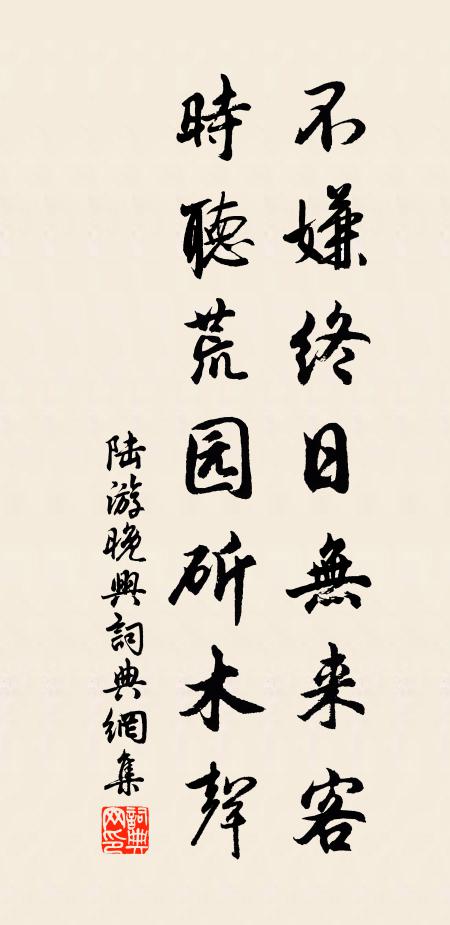 不嫌终日無来客
時聽荒园斫木聲
陆游晚興詞典網集
詞典网印